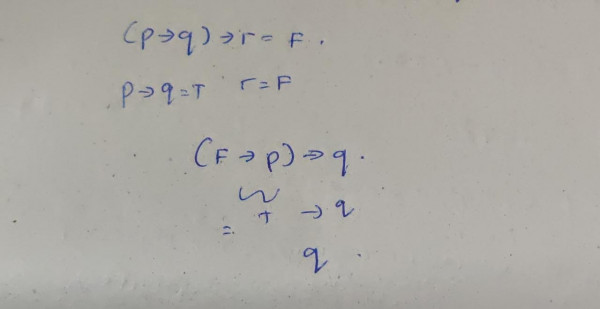 (p→q)→r = F.
p→q=T r=F
(F→p)→q.
= T →q
q.